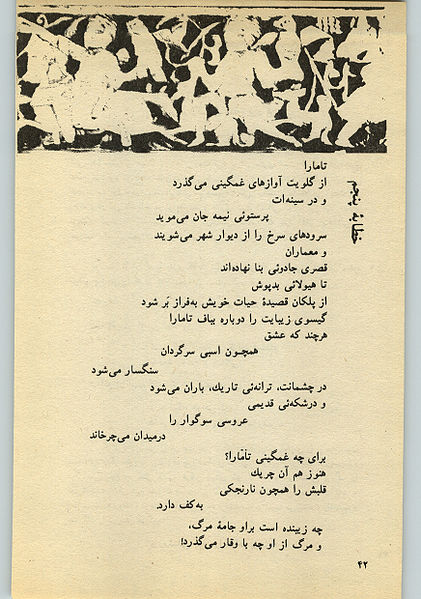 خطابهٔ پنجم
تامارا
از گلویت آوازهای غمگینی می‌گذرد
و در سینه‌ات
پرستوئی نیمه جان می‌موید
سرودهای سرخ را از دیوار شهر می‌شویند
و معماران
قصری جادوئی بنا نهاده‌اند
تا هیولائی بدپوش
از پلکان قصیدهٔ حیات خویش به‌فراز بَر شود
گیسوی زیبایت را دوباره بباف تامارا
هرچند که عشق
همچون اسبی سرگردان
سنگسار می‌شود
در چشمانت، ترانه‌ئی تاریك، باران می‌شود
و درشکه‌ئی قدیمی
عروسی سوگوار را
درمیدان می‌چرخاند
برای چه غمگینی تامارا؟
هنوز هم آن چریك
قلبش را همچون نارنجکی
به‌کف دارد.
چه زیبنده است براو جامهٔ مرگ،
و مرگ از او چه با وقار می‌گذرد!
۴۲